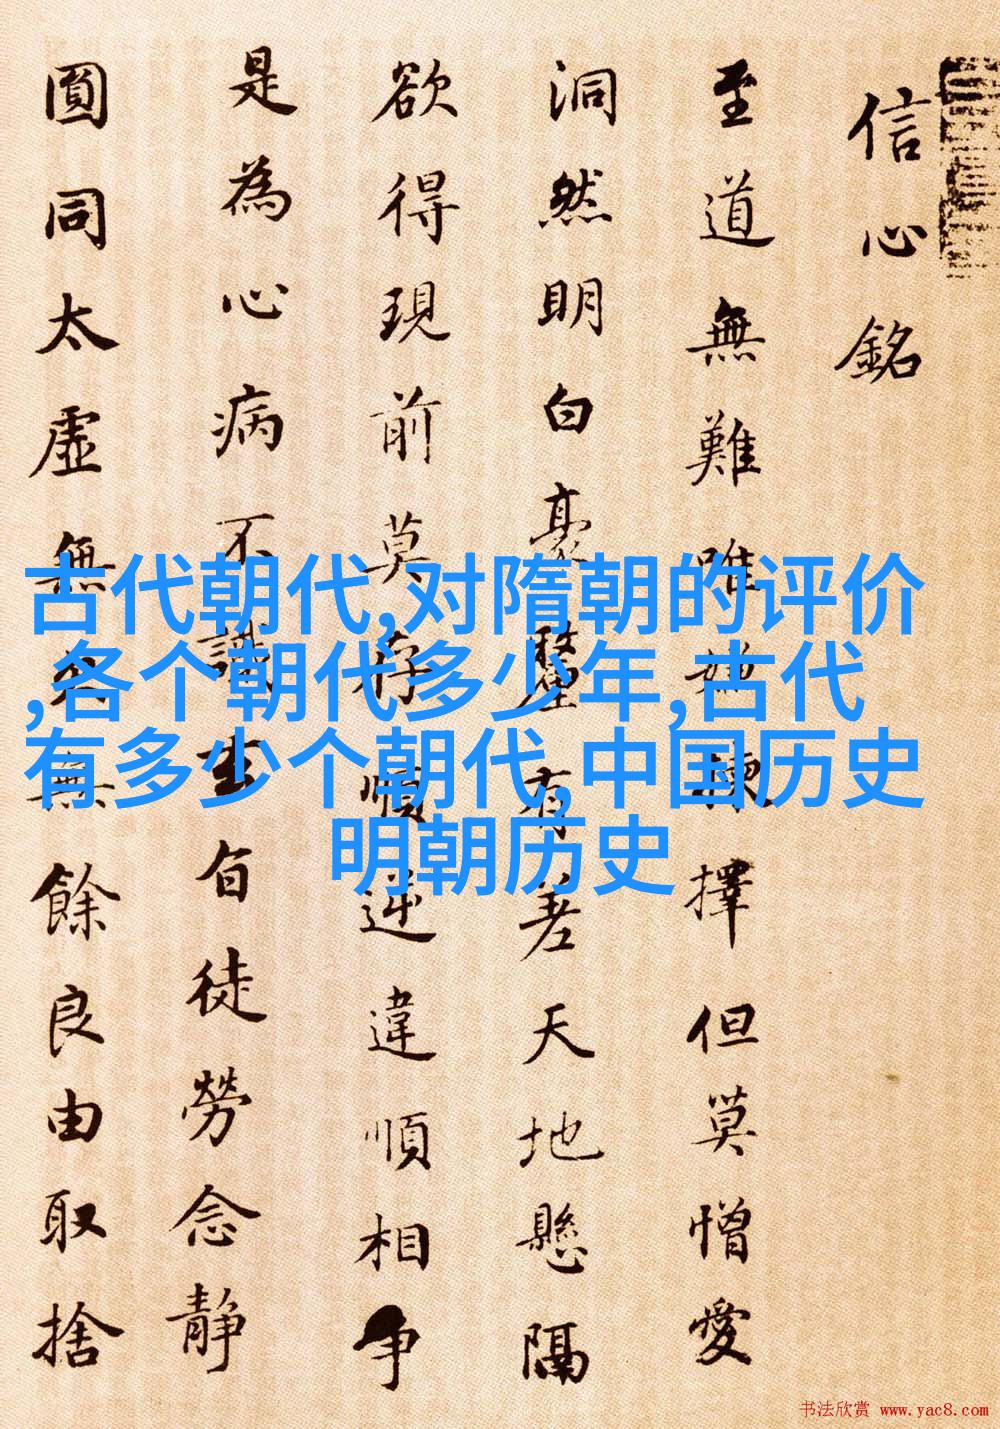 信心銘
至道無難唯嫌揀擇但莫憎愛
洞然明白豪釐有差天地懸隔
欲得現前莫存順逆違順相争
是為心病不識玄旨徒勞念静
圓同太虛無欠無餘良由取捨
古代朝代,对隋朝的评价
,各个朝代多少年,古代
有多少个朝代,中国历史
明朝历史
书法欣赏 www.yac8.com